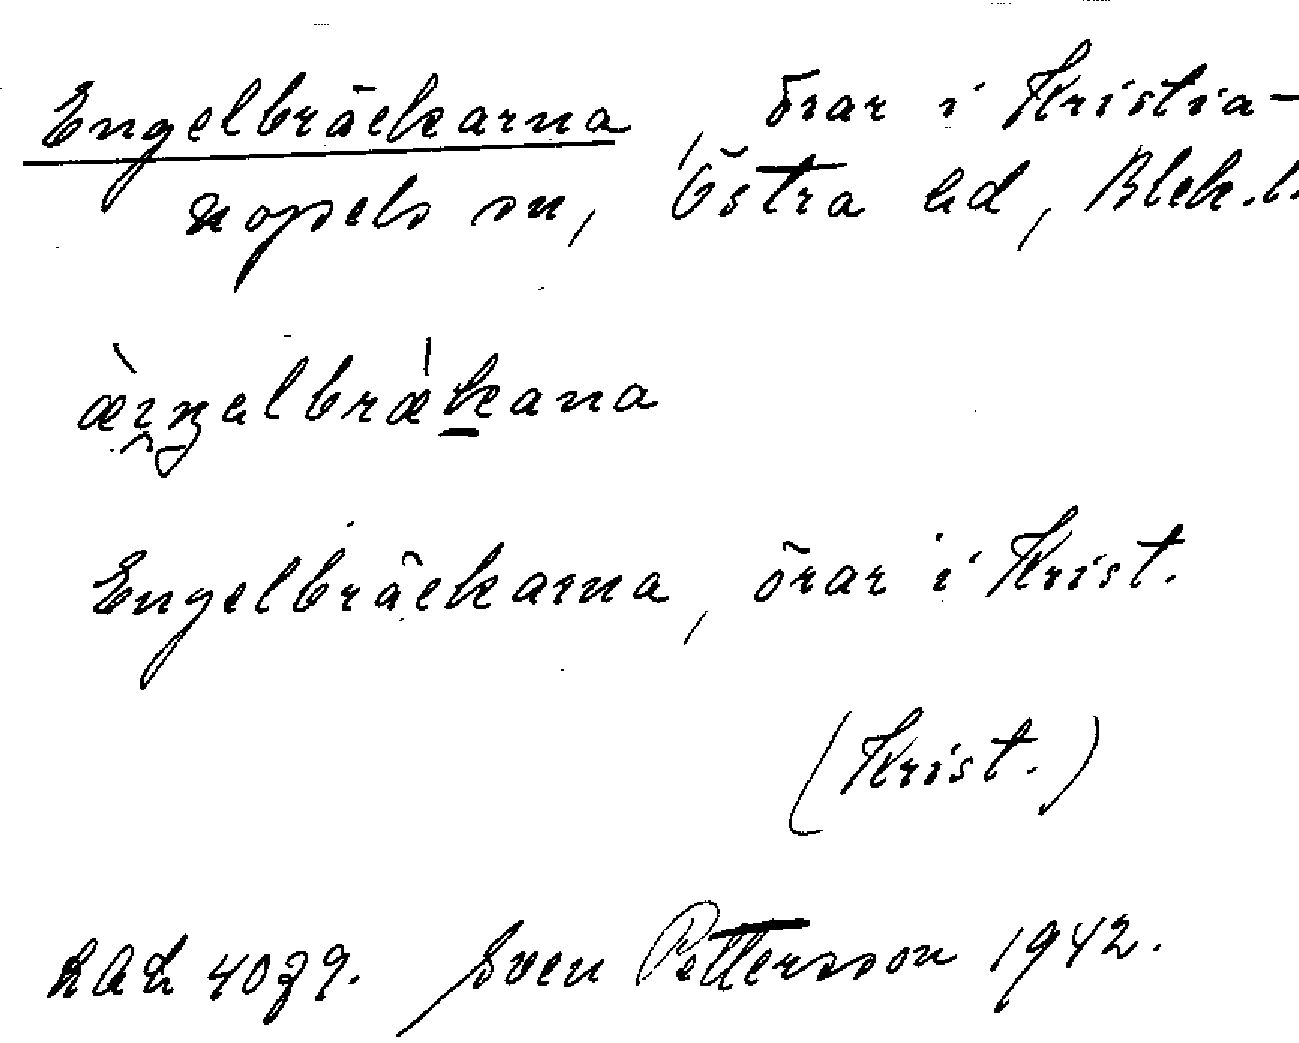 Engelbräckarna, örar i Kristia-
nopels sn, Östra hd, Blek. l.
Engelbräckarna, örar i Krist.
(Krist.)
Sven Pettersson 1942.